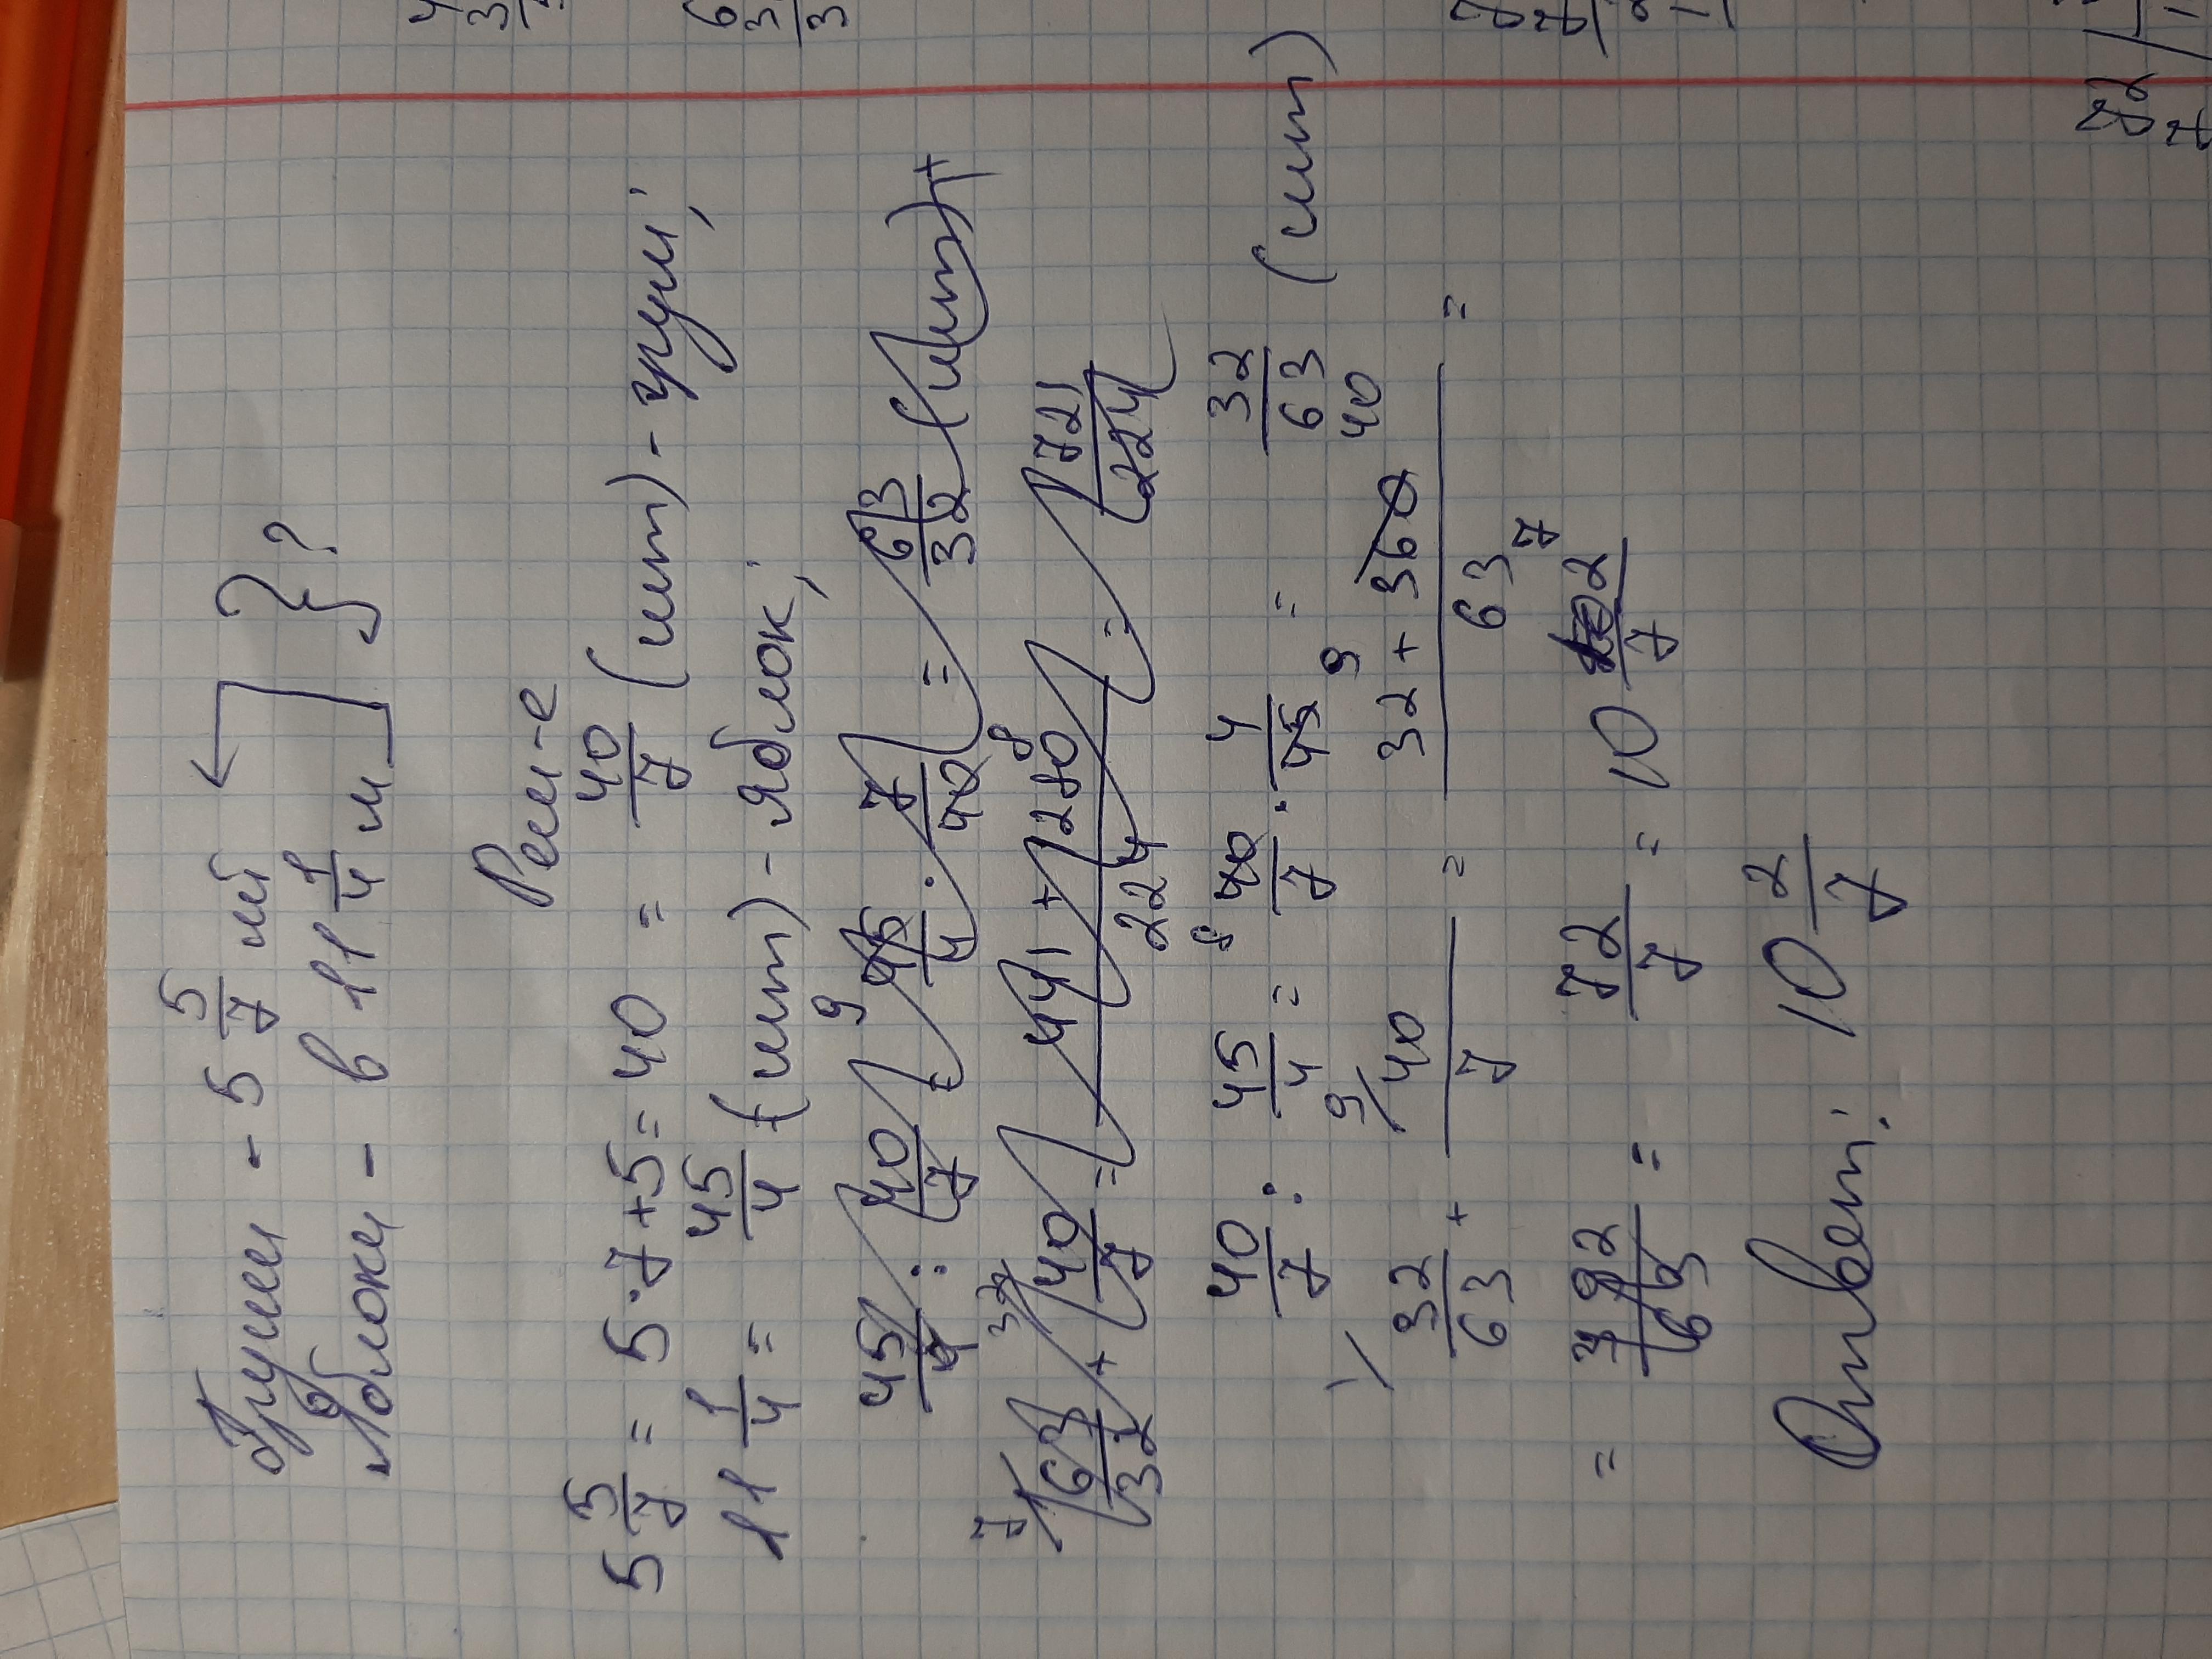 Груши - 5 5/7 ш
Яблоки - в 1 1/4 м } ?
Реш-е
5 5/7 = 5·7+5=40 = 40/7 (шт) - груш;
11 1/4 = 45/4 (шт) - яблок;
45/4 : 40/7 = 45/4 · 7/40 = 63/32 (шт) +
63/32 + 40/7 = 441 + 1280/224 = 1721/224
40/7 : 45/4 = 40/7 · 4/45 = 32/63 (шт)
32/63 + 40/7 = 32 + 360/63 =
= 392/63 = 72/7 = 10 2/7
Ответ: 10 2/7